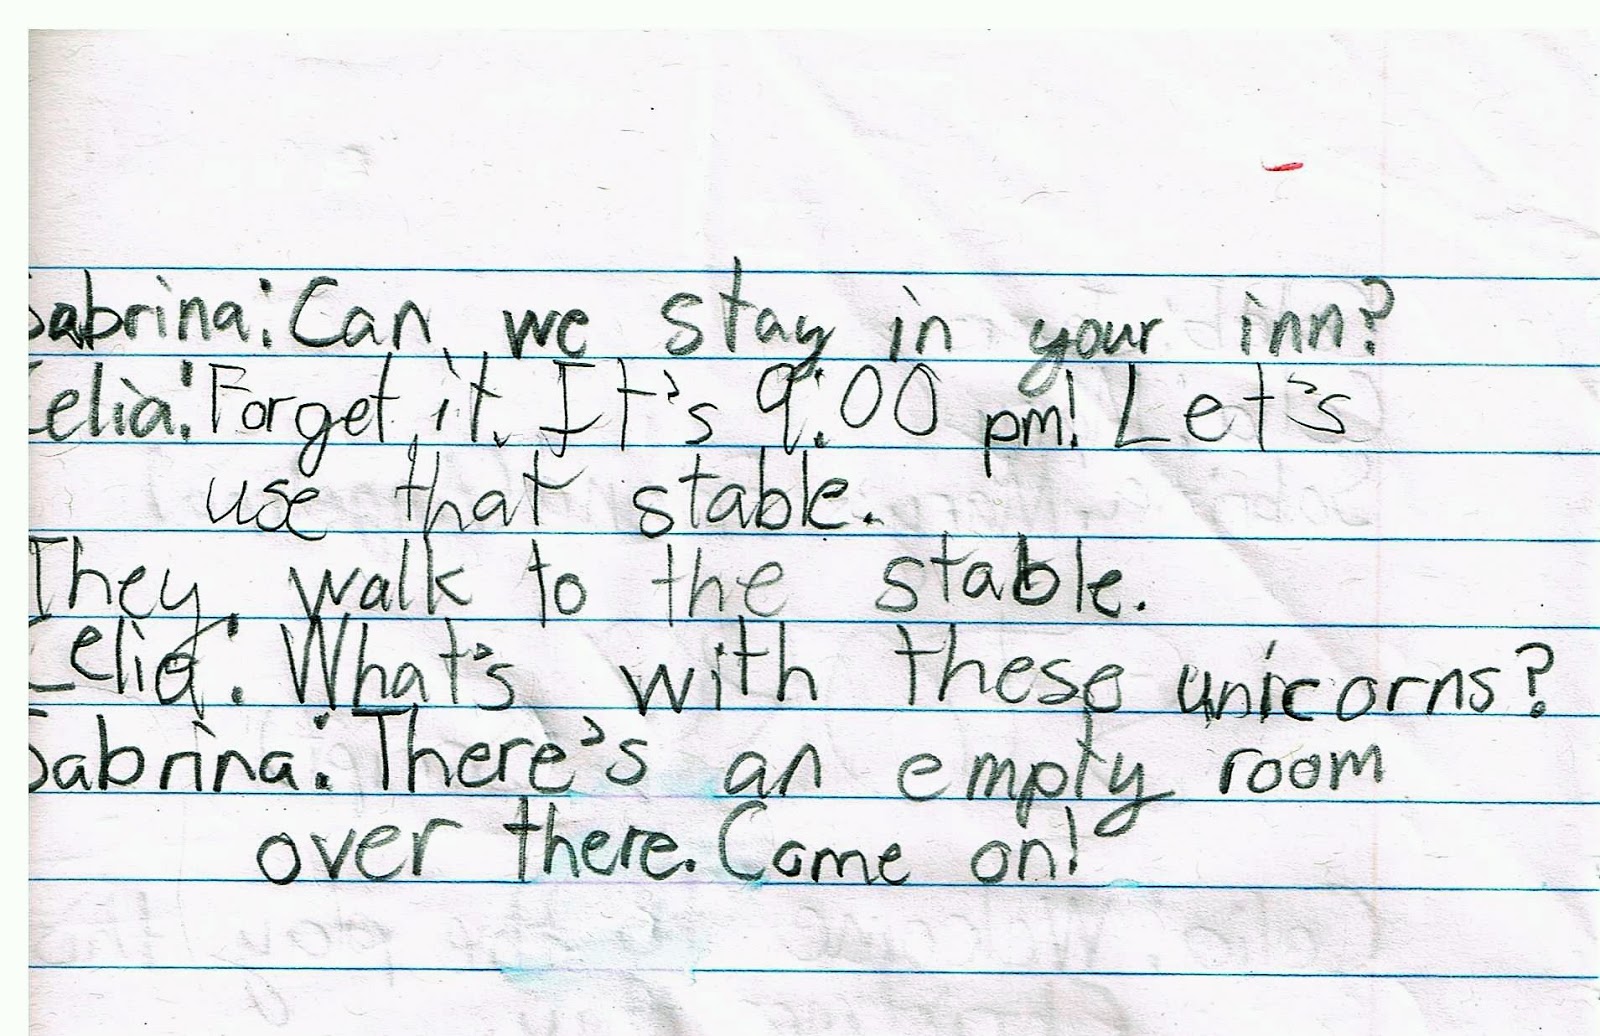 Sabrina: Can we stay in your inn?
Celia: Forget it. It's 9:00 pm! Let's
use that stable.
They walk to the stable.
Celia: What's with these unicorns?
Sabrina: There's an empty room
over there. Come on!